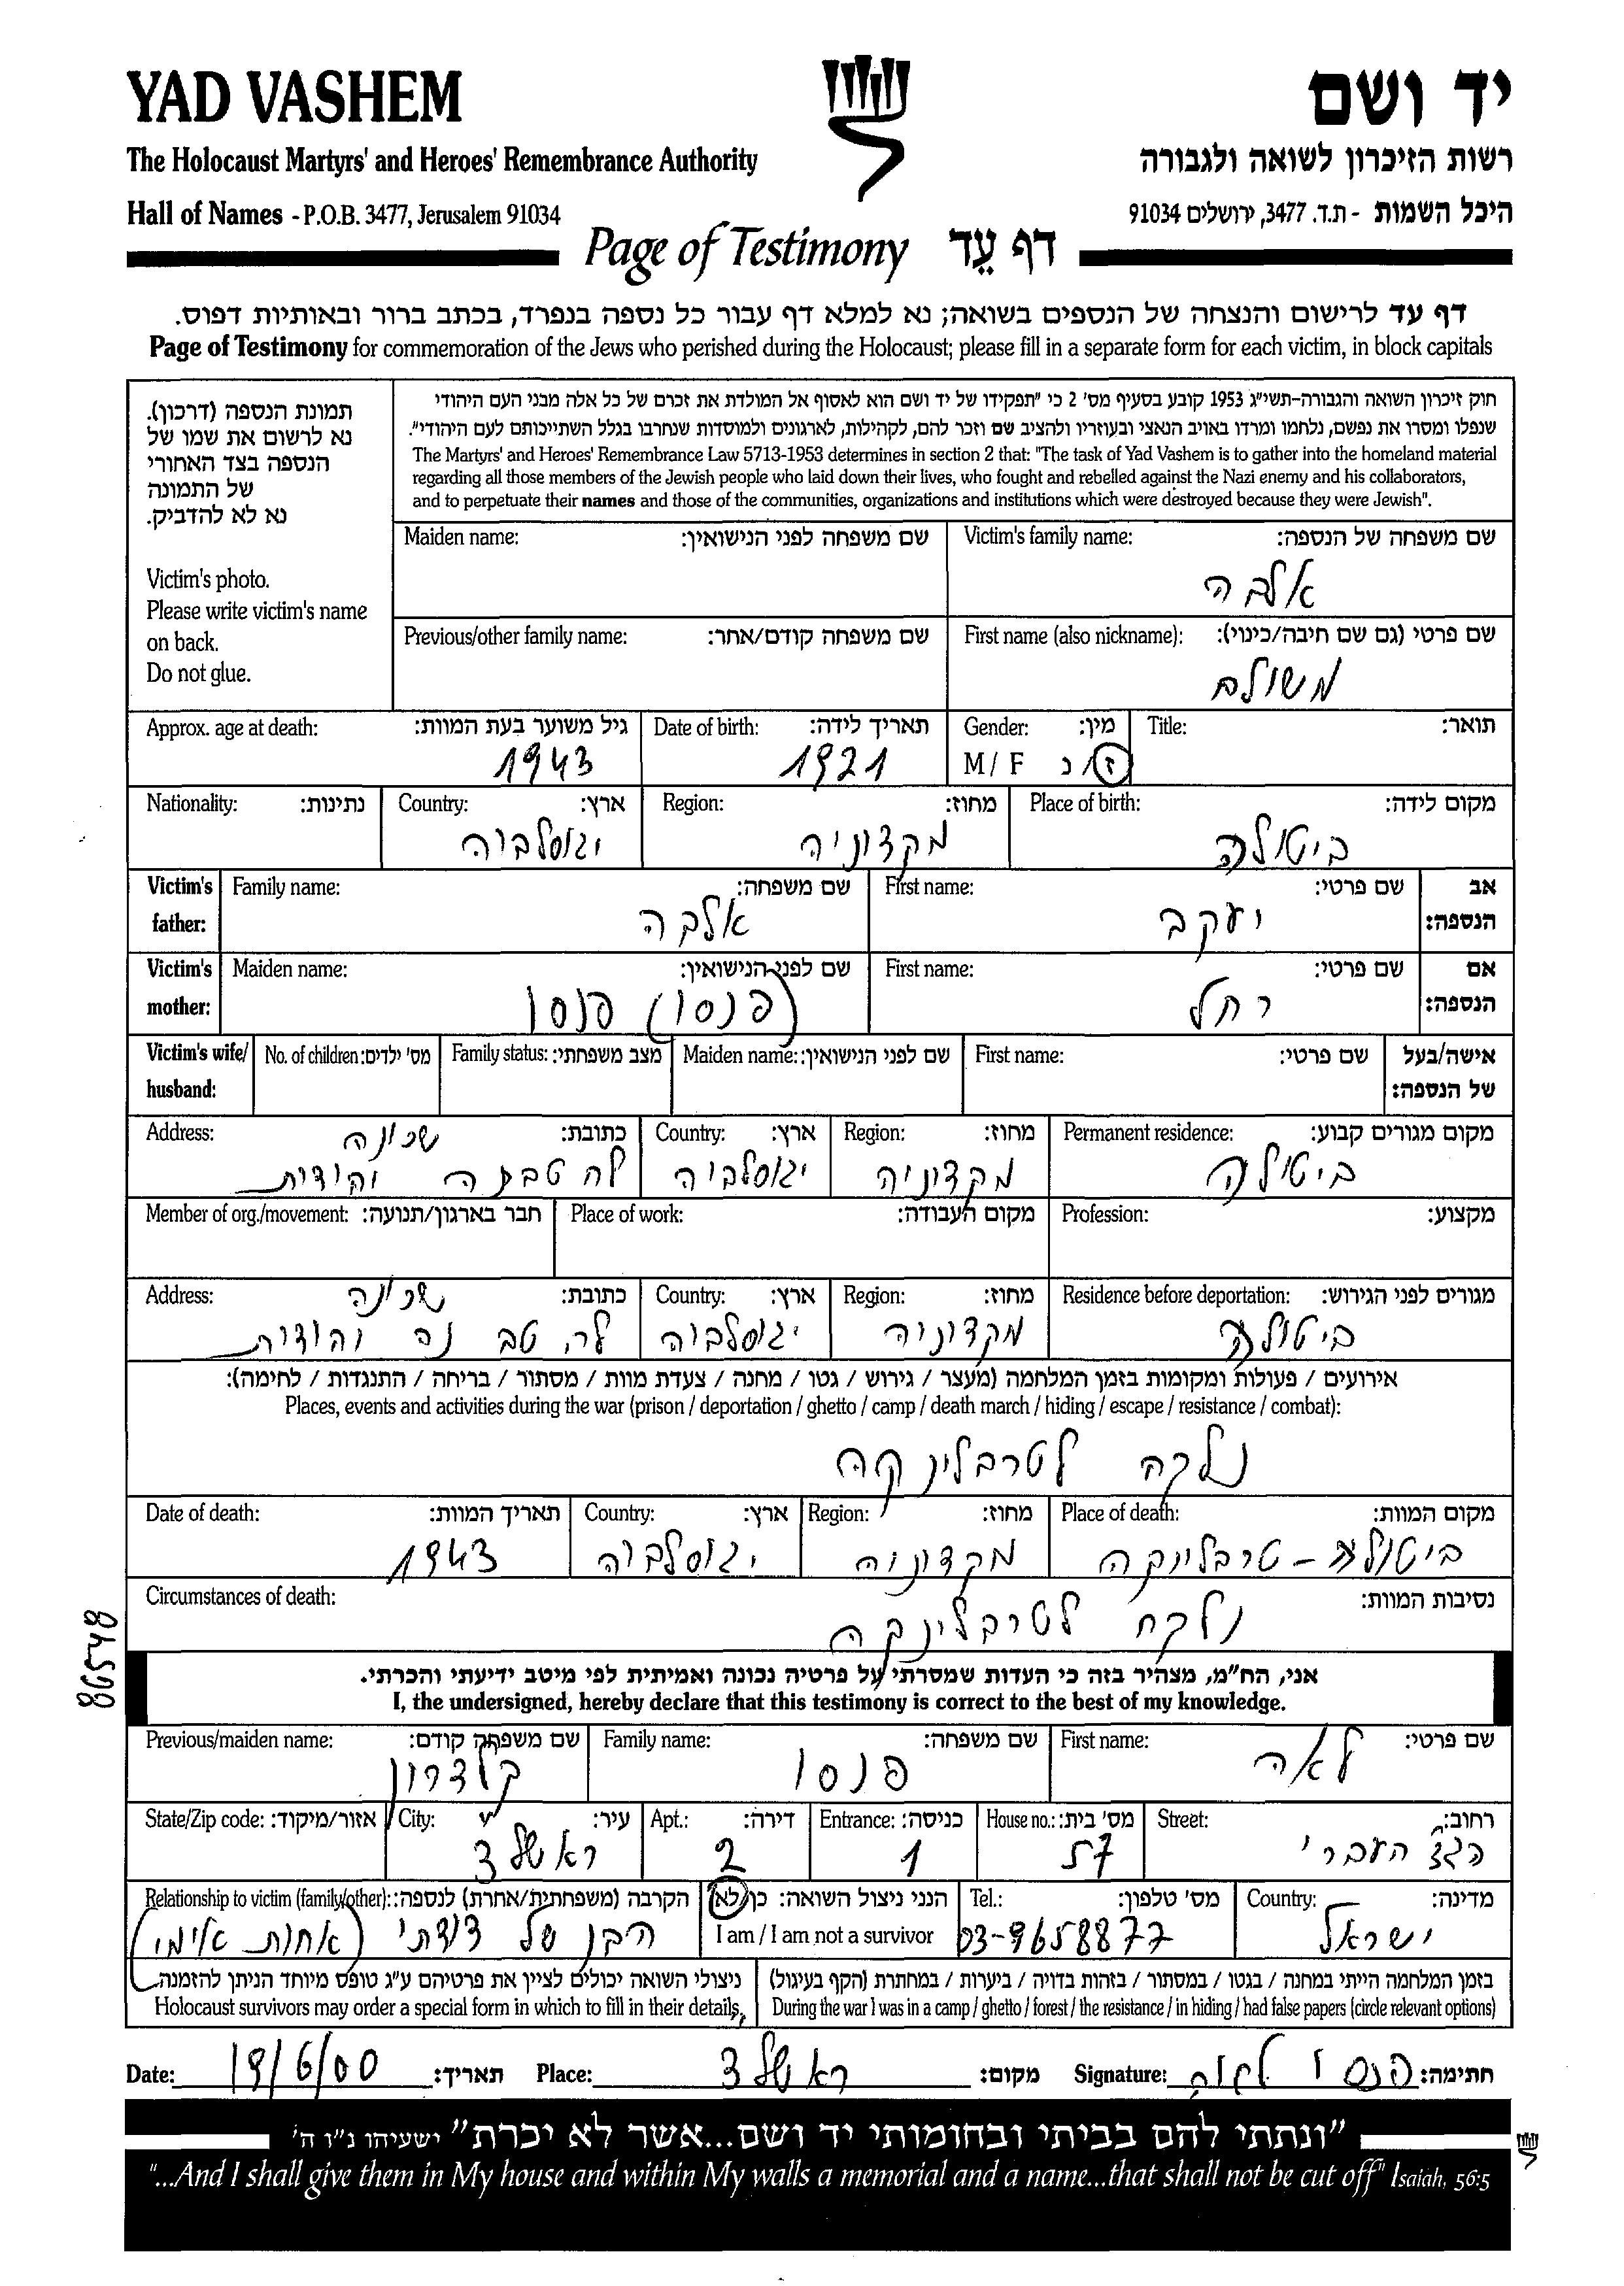 YAD VASHEM
יד ושם
The Holocaust Martyrs' and Heroes' Remembrance Authority
רשות הזיכרון לשואה ולגבורה
Hall of Names - P.O.B. 3477, Jerusalem 91034
היכל השמות - ת.ד. 3477, ירושלים 91034
Page of Testimony דף עֵד
דף עד לרישום והנצחה של הנספים בשואה; נא למלא דף עבור כל נספה בנפרד, בכתב ברור ובאותיות דפוס.
Page of Testimony for commemoration of the Jews who perished during the Holocaust; please fill in a separate form for each victim, in block capitals
תמונת הנספה (דרכון).
נא לרשום את שמו של
הנספה בצד האחורי
של התמונה
נא לא להדביק.
Victim's photo.
Please write victim's name
on back.
Do not glue.
חוק זיכרון השואה והגבורה-תשי"ג 1953 קובע בסעיף מס' 2 כי "תפקידו של יד ושם הוא לאסוף אל המולדת את זכרם של כל אלה מבני העם היהודי
שנפלו ומסרו את נפשם, נלחמו ומרדו באויב הנאצי ובעוזריו ולהציב שם וזכר להם, לקהילות, לארגונים ולמוסדות שנחרבו בגלל השתייכותם לעם היהודי".
The Martyrs' and Heroes' Remembrance Law 5713-1953 determines in section 2 that: "The task of Yad Vashem is to gather into the homeland material
regarding all those members of the Jewish people who laid down their lives, who fought and rebelled against the Nazi enemy and his collaborators,
and to perpetuate their names and those of the communities, organizations and institutions which were destroyed because they were Jewish".
Victim's family name: שם משפחה של הנספה:
אלבה
Maiden name: שם משפחה לפני הנישואין:
First name (also nickname): שם פרטי (גם שם חיבה/כינוי):
משולם
Previous/other family name: שם משפחה קודם/אחר:
Title: תואר:
Gender: מין:
M / F ז/נ
Date of birth: תאריך לידה:
1921
Approx. age at death: גיל משוער בעת המוות:
1943
Place of birth: מקום לידה:
ביטולה
Region: מחוז:
מקדוניה
Country: ארץ:
יגוסלביה
Nationality: נתינות:
Victim's father: אב הנספה:
First name: שם פרטי:
יעקב
Family name: שם משפחה:
אלבה
Victim's mother: אם הנספה:
First name: שם פרטי:
רחל
Maiden name: שם לפני הנישואין:
(פנסו) פנסו
Victim's wife/husband: אישה/בעל של הנספה:
First name: שם פרטי:
Maiden name: שם לפני הנישואין:
Family status: מצב משפחתי:
No. of children: מס' ילדים:
Permanent residence: מקום מגורים קבוע:
ביטולה
Region: מחוז:
מקדוניה
Country: ארץ:
יגוסלביה
Address: כתובת:
שכונה
יהודית
Profession: מקצוע:
Place of work: מקום העבודה:
Member of org./movement: חבר בארגון/תנועה:
Residence before deportation: מגורים לפני הגירוש:
ביטולה
Region: מחוז:
מקדוניה
Country: ארץ:
יגוסלביה
Address: כתובת:
שכונה
יהודית
אירועים / פעולות ומקומות בזמן המלחמה (מעצר / גירוש / גטו / מחנה / צעדת מוות / מסתור / בריחה / התנגדות / לחימה):
Places, events and activities during the war (prison / deportation / ghetto / camp / death march / hiding / escape / resistance / combat):
נלקח לטרבלינקה
Place of death: מקום המוות:
ביטולה - טרבלינקה
Region: מחוז:
מקדוניה
Country: ארץ:
יגוסלביה
Date of death: תאריך המוות:
1943
Circumstances of death: נסיבות המוות:
נלקח לטרבלינקה
אני, הח"מ, מצהיר בזה כי העדות שמסרתי על פרטיה נכונה ואמיתית לפי מיטב ידיעתי והכרתי.
I, the undersigned, hereby declare that this testimony is correct to the best of my knowledge.
866548
First name: שם פרטי:
לאה
Family name: שם משפחה:
פנסו
Previous/maiden name: שם משפחה קודם:
קלדרון
Street: רחוב:
העברי
House no.: מס' בית:
57
Entrance: כניסה:
1
Apt.: דירה:
2
City: עיר:
ראשל"צ
State/Zip code: אזור/מיקוד:
Country: מדינה:
ישראל
Tel.: מס' טלפון:
03-9658877
הנני ניצול השואה: כן/לא
I am / I am not a survivor
Relationship to victim (family/other): הקרבה (משפחתית/אחרת) לנספה:
הבן של דודתי (אחות אימי)
בזמן המלחמה הייתי במחנה / בגטו / במסתור / בזהות בדויה / ביערות / במחתרת (הקף בעיגול)
During the war I was in a camp / ghetto / forest / the resistance / in hiding / had false papers (circle relevant options)
ניצולי השואה יכולים לציין את פרטיהם ע"ג טופס מיוחד הניתן להזמנה.
Holocaust survivors may order a special form in which to fill in their details.
Date: 19/6/00 תאריך: Place: ראשל"צ מקום: Signature: פנסו לאה חתימה:
"ונתתי להם בביתי ובחומותי יד ושם...אשר לא יכרת" ישעיהו נ"ו ה'
"...And I shall give them in My house and within My walls a memorial and a name...that shall not be cut off" Isaiah, 56:5